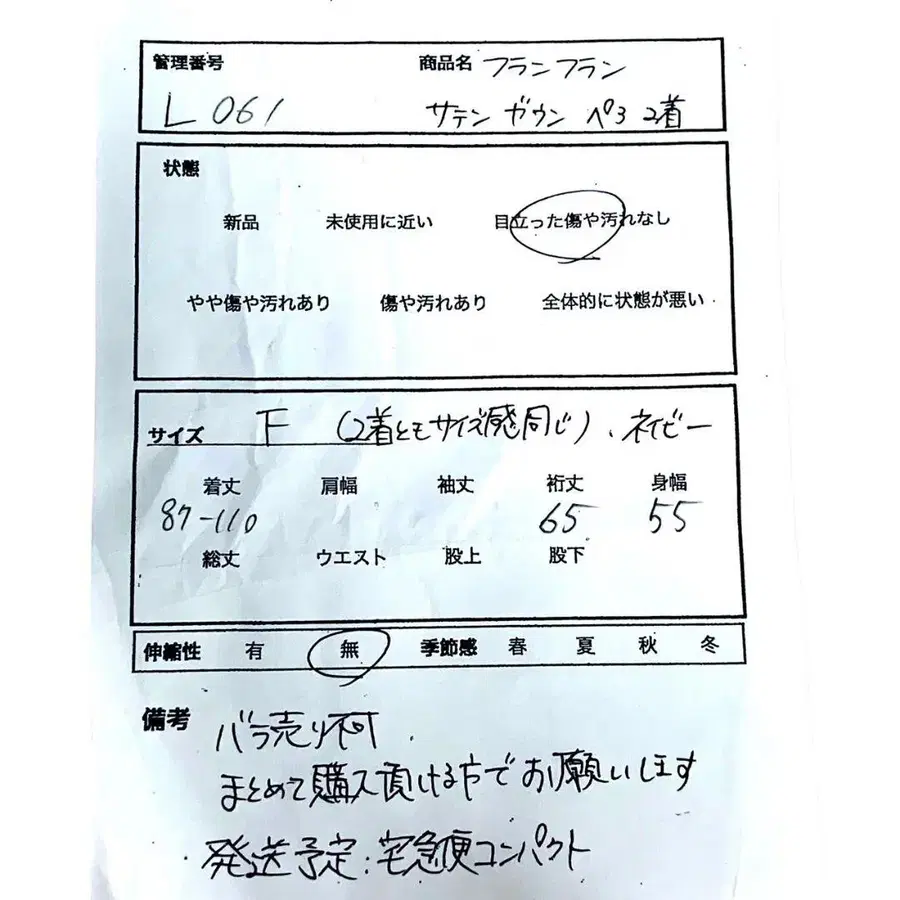 管理番号 商品名 フランフラン
L 061 サテン ガウン ペ3 2着
状態
新品 未使用に近い 目立った傷や汚れなし
やや傷や汚れあり 傷や汚れあり 全体的に状態が悪い
サイズ F (2着ともサイズ感同じ)、ネイビー
着丈 肩幅 袖丈 裄丈 身幅
87-110 65 55
総丈 ウエスト 股上 股下
伸縮性 有 無 季節感 春 夏 秋 冬
備考 バラ売り不可.
まとめて購入頂ける方でお願いします
発送予定:宅急便コンパクト